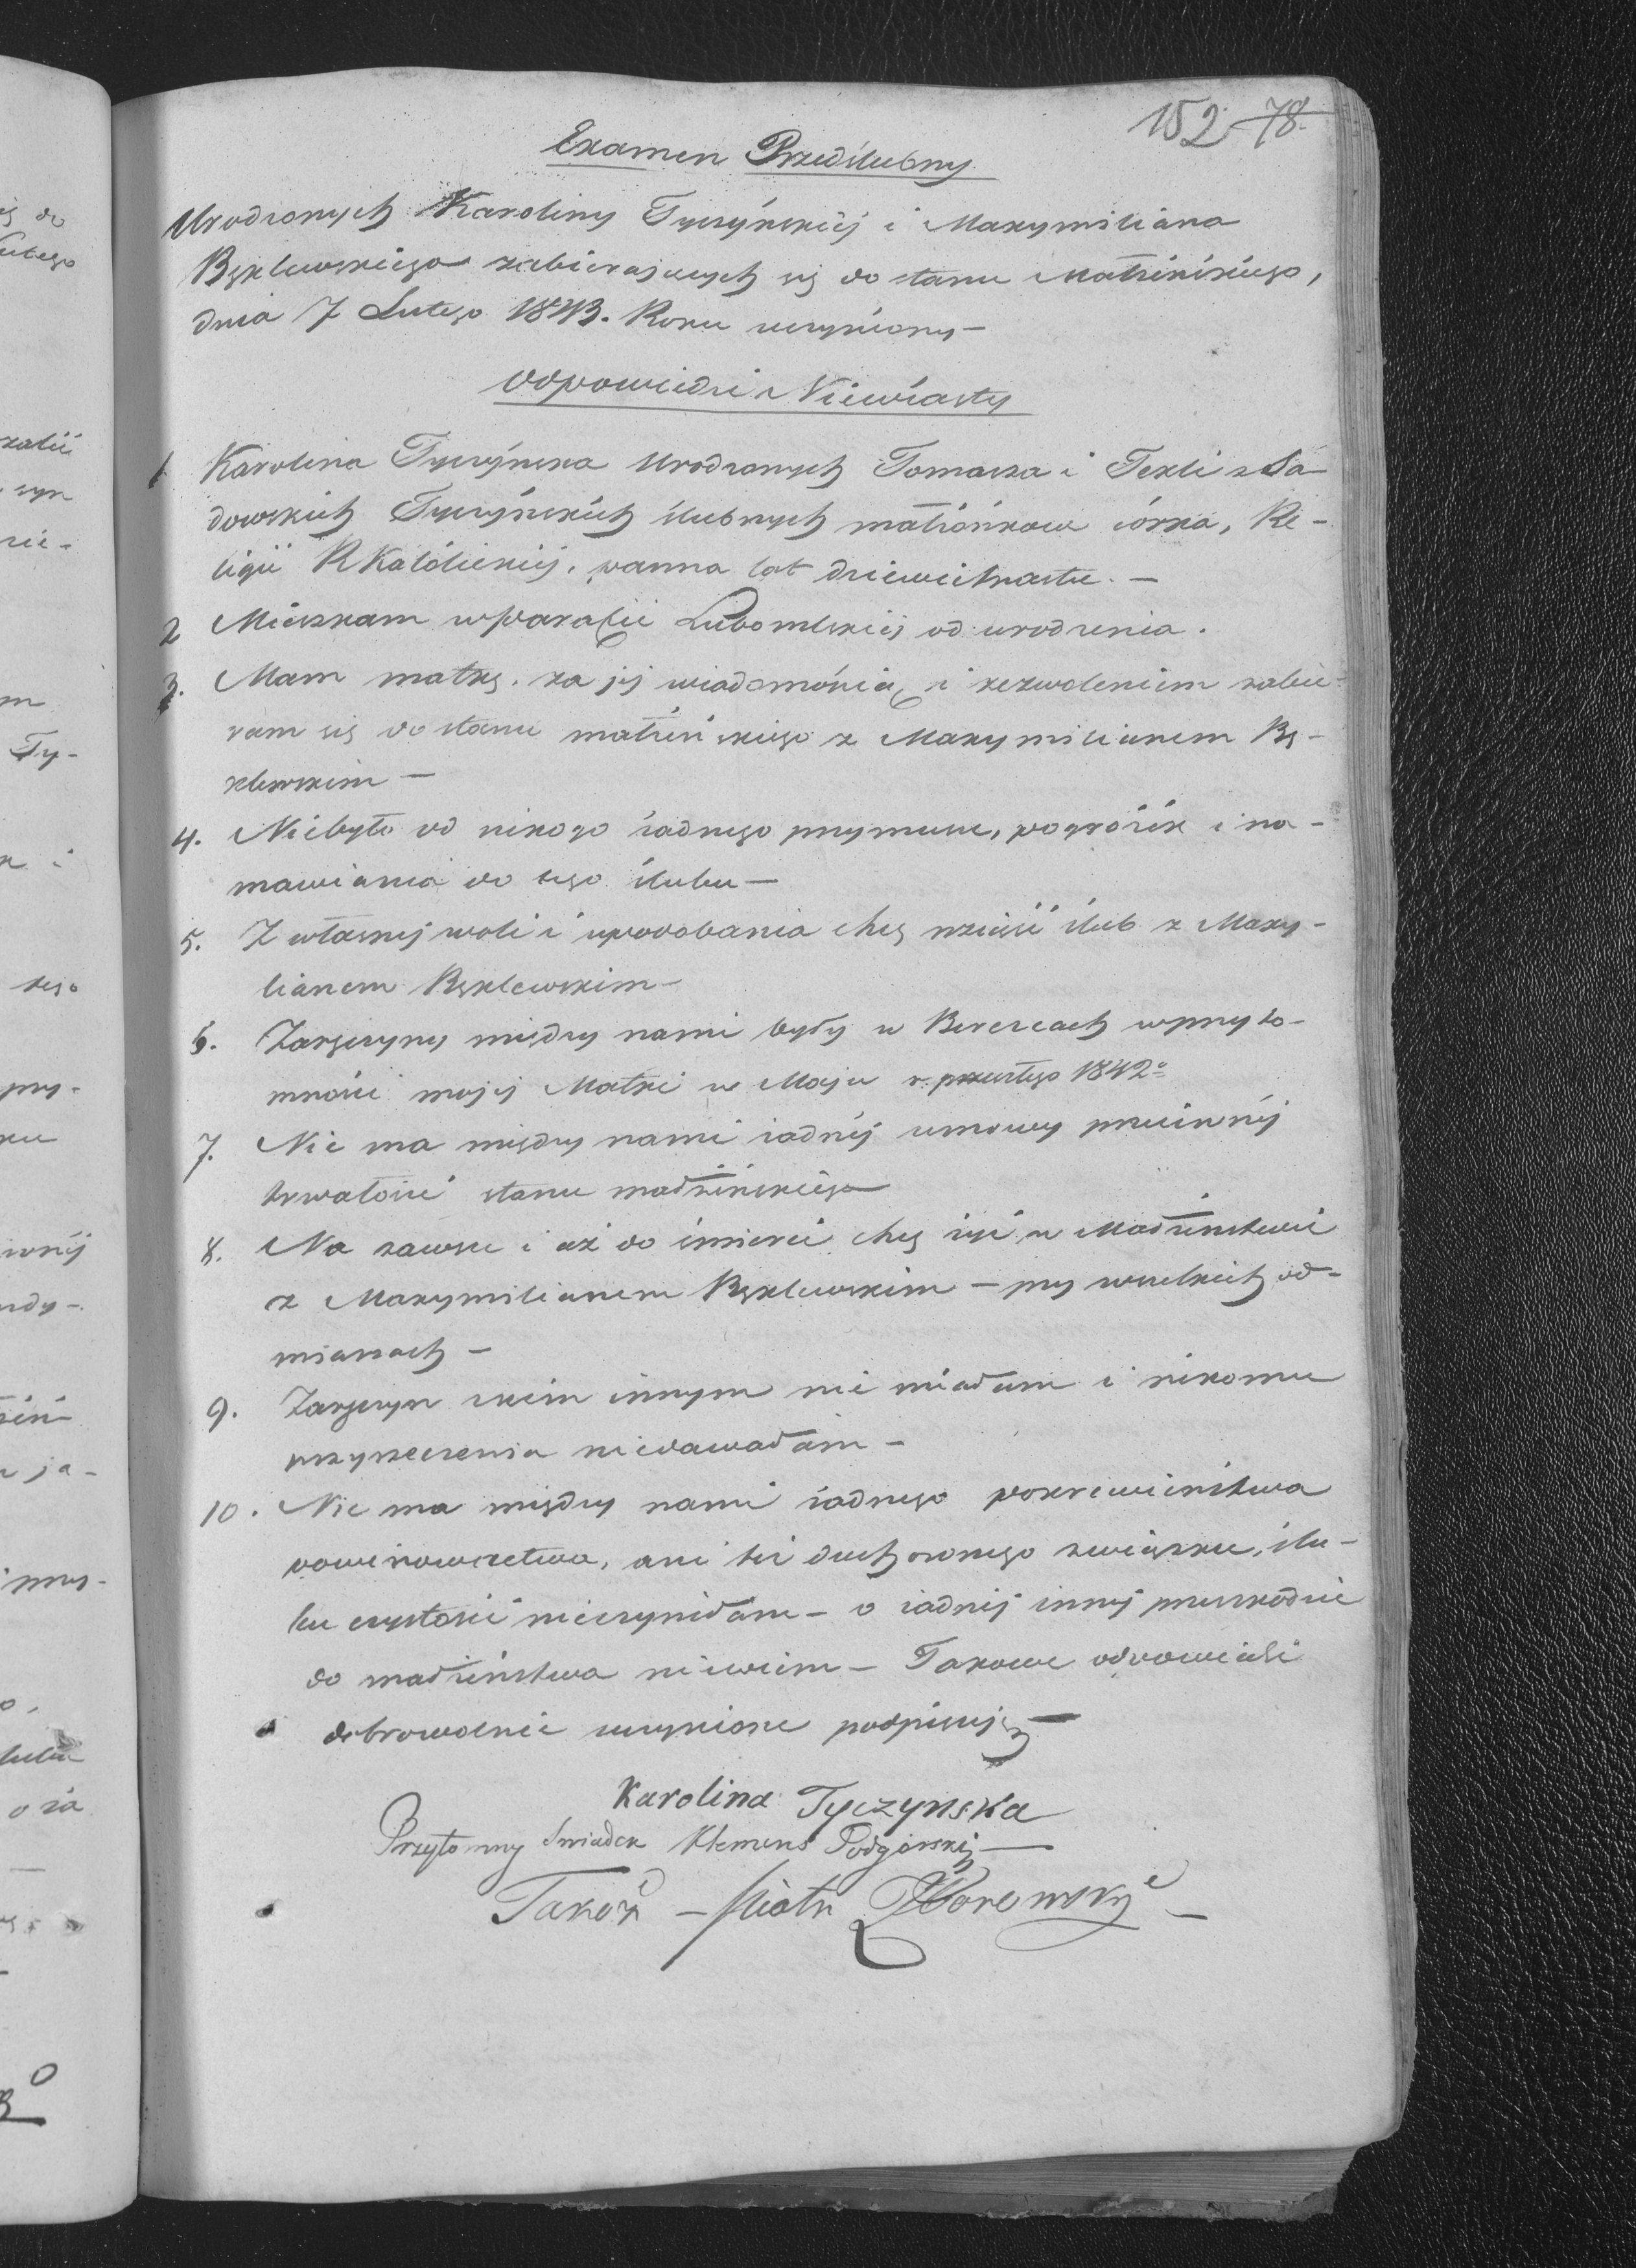 152 78.
Examen Przedślubny
Urodzonych Karoliny Tyczyńskiéj i Maxymiliana
Bęklewskiego zabierających się do stanu Małżeńskiego,
dnia 7 Lutego 1843. Roku uczyniony —
Odpowiedzi Niewiasty
1 Karolina Tyczyńska Urodzonych Tomasza i Tekli z Sa-
dowskich Tyczyńskich ślubnych małżonkow córka, Re-
ligii R Katolickiéj, panna lat dziewietnaście. —
2 Mieszkam w Parafii Lubomlskiéj od urodzenia.
3. Mam matkę. za jéj wiadomością i zezwoleniem zabie-
ram się do stanu małżeńskiego z Maxymilianem Bę-
klewskim —
4. Niebyło od nikogo żadnego przymusu, pogróżek i na-
mawiania do tego ślubu —
5. Z własnej woli i upodobania chcę wziąść ślub z Maxy-
lianem Bęklewskim —
6. Zaręczyny między nami były w Berezcach w przyto-
mności mojéj Matki w Maju r. przeszłego 1842º
7. Nie ma między nami żadnéj umowy przeciwnéj
trwałości stanu małżeńskiego
8. Na zawsze i aż do śmierci chcę żyć w Małżeństwie
z Maxymilianem Bęklewskim — przy wszelkich od-
mianach —
9. Zaręczyn z kim innym nie miałam i nikomu
przyrzeczenia niedawałam —
10. Nie ma między nami żadnego pokrewieństwa
powinowactwa, ani też duchownego związku, ślu-
bu czystości nieczyniłam — o żadnéj innéj przeszkodzie
do małżeństwa niewiem — Takowe odpowiedzi
dobrowolnie uczynione podpisuję —
Karolina Tyczynska
Przytomny Swiadek Klemens Podgorski —
Takoż — Piotr